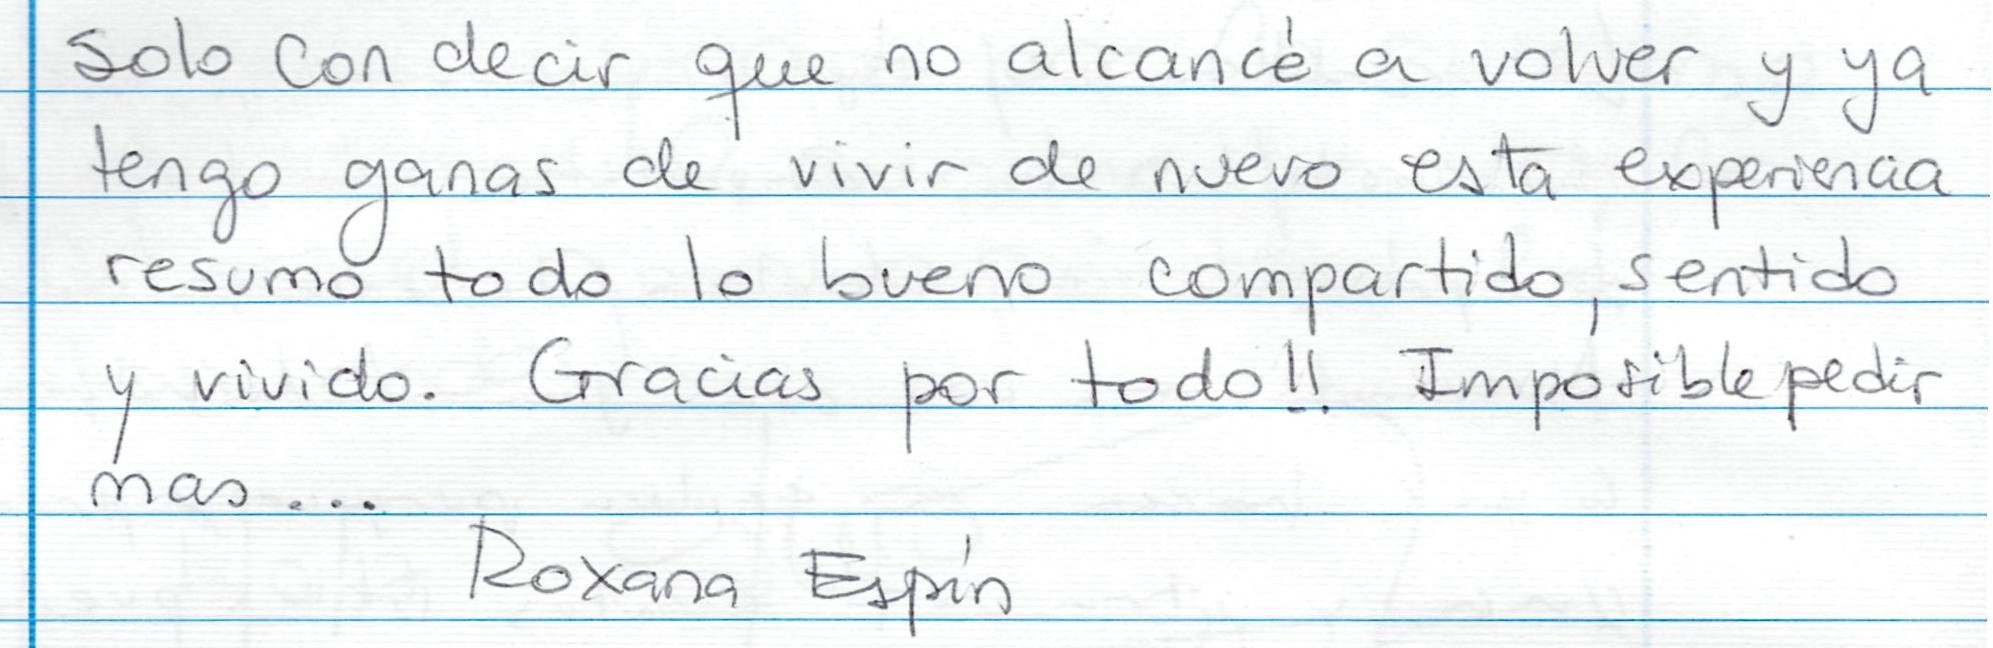 Solo con decir que no alcancé a volver y ya
tengo ganas de vivir de nuevo esta experiencia
resumo todo lo bueno compartido, sentido
y vivido. Gracias por todo!! Imposible pedir
mas....
Roxana Espín